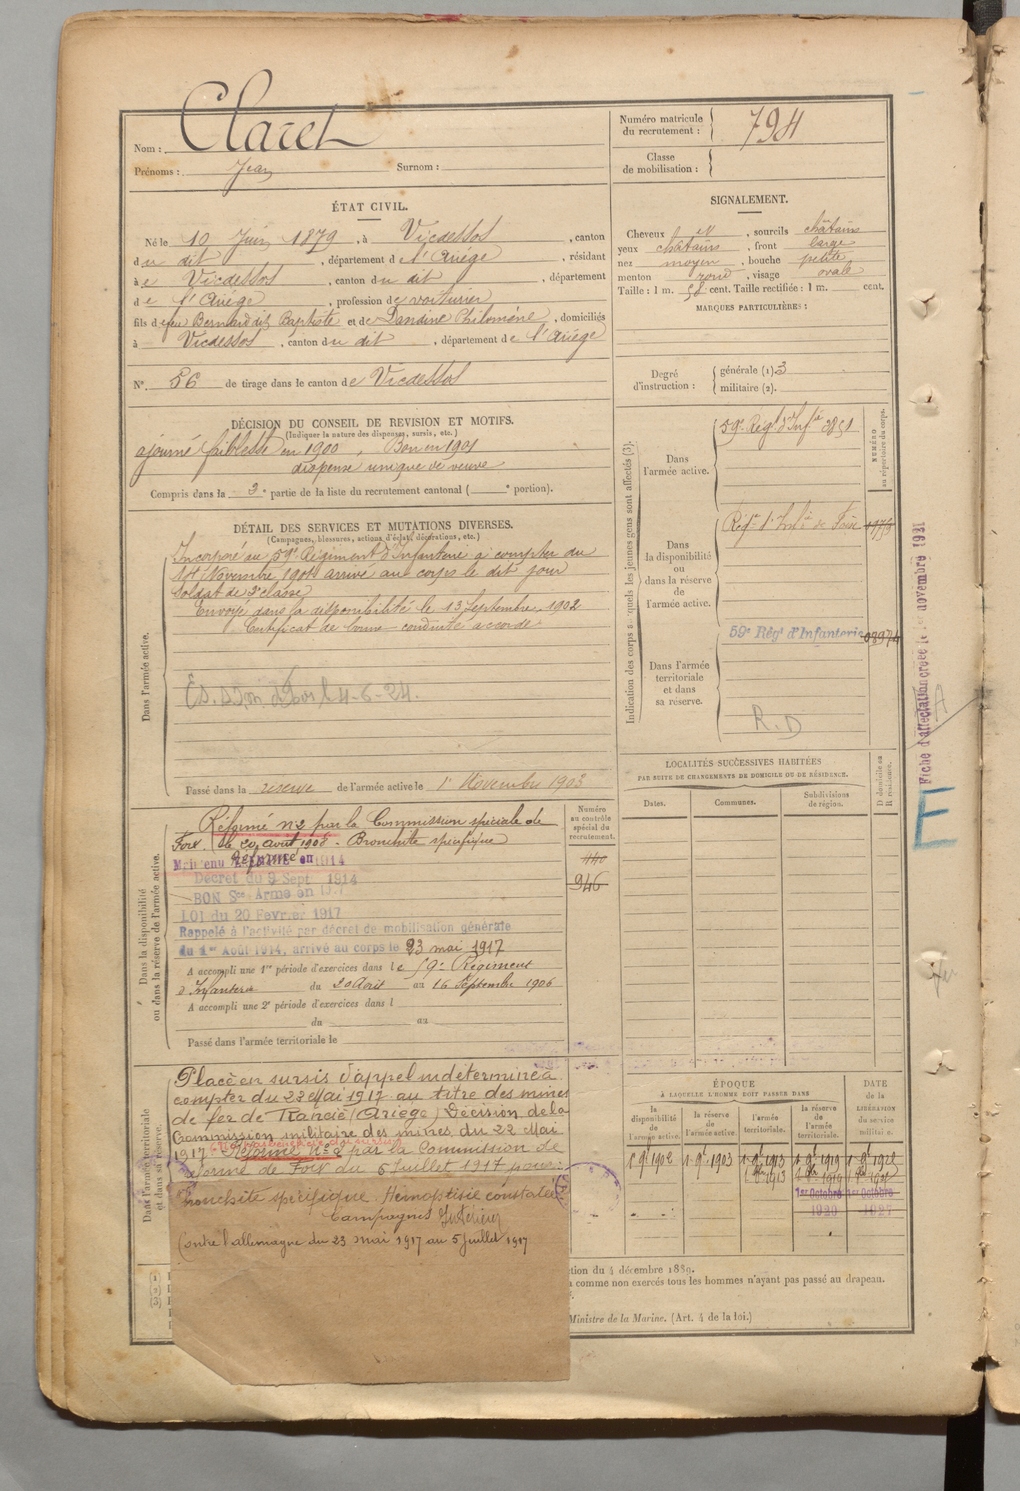 Nom : Claret
Prénoms : Jean Surnom :
Numéro matricule du recrutement : 794
Classe de mobilisation :
ÉTAT CIVIL.
Né le 10 Juin 1879, à Vicdessos, canton
du dit, département de l'Ariège, résidant
à Vicdessos, canton du dit, département
de l'Ariège, profession de voiturier
fils de feu Bernard dit Baptiste et de Dandine Philomène, domiciliés
à Vicdessos, canton du dit, département de l'Ariège
N° 56 de tirage dans le canton de Vicdessos
SIGNALEMENT.
Cheveux , sourcils châtains
yeux châtains, front large
nez moyen, bouche petite
menton rond, visage ovale
Taille : 1 m. 58 cent. Taille rectifiée : 1 m. cent.
MARQUES PARTICULIÈRES :
Degré d'instruction : générale (1). 3
militaire (2).
DÉCISION DU CONSEIL DE REVISION ET MOTIFS.
(Indiquer la nature des dispenses, sursis, etc.)
ajourné faiblesse en 1900, Bon en 1901
dispense unique de veuve
Compris dans la 2e partie de la liste du recrutement cantonal ( e portion).
DÉTAIL DES SERVICES ET MUTATIONS DIVERSES.
(Campagnes, blessures, actions d'éclat, décorations, etc.)
Dans l'armée active.
Incorporé au 59e Régiment d'Infanterie à compter du
14 Novembre 1901 arrivé au corps le dit jour
Soldat de 2e classe
Envoyé dans la disponibilité le 13 Septembre 1902
Certificat de bonne conduite accordé
4-6-24.
Passé dans la réserve de l'armée active le 1er Novembre 1903
Indication des corps auxquels les jeunes gens sont affectés (3).
NUMÉRO au répertoire du corps.
Dans l'armée active.
59e Régt d'Infie 3851
Dans la disponibilité ou dans la réserve de l'armée active.
Régt d'Infie de Foix
Dans l'armée territoriale et dans sa réserve.
59e Régt d'Infanterie 03974
R.D
Fiche d'affectation créée le 1er novembre 1931
E
LOCALITÉS SUCCESSIVES HABITÉES
PAR SUITE DE CHANGEMENTS DE DOMICILE OU DE RÉSIDENCE.
Dates. Communes. Subdivisions de région.
D domicile ou R résidence.
Dans la disponibilité ou dans la réserve de l'armée active.
Numéro au contrôle spécial du recrutement.
440
946
Réformé n°2 par la Commission spéciale de
Foix le 20 août 1908 - Bronchite spécifique
Maintenu Réformé en 1914
Décret du 9 Sept 1914
BON Sce Armé en 1917
LOI du 20 Février 1917
Rappelé à l'activité par décret de mobilisation générale
du 1er Août 1914, arrivé au corps le 23 mai 1917
A accompli une 1re période d'exercices dans le 59e Régiment
d'Infanterie du 20 Août au 16 Septembre 1906
A accompli une 2e période d'exercices dans l
du au
Passé dans l'armée territoriale le
Dans l'armée territoriale et dans sa réserve.
Placé en sursis d'appel indéterminé à
compter du 22 Mai 1917 au titre des mines
de fer de Rancié (Ariège) Décision de la
Commission militaire des mines du 22 Mai
1917. Réformé N°2 par la Commission de
réforme de Foix du 5 Juillet 1917 pour :
Bronchite spécifique. Hémoptisie constatée
Campagnes Intérieur
Contre l'allemagne du 23 mai 1917 au 5 juillet 1917
ÉPOQUE
À LAQUELLE L'HOMME DOIT PASSER DANS
la disponibilité de l'armée active.
la réserve de l'armée active.
l'armée territoriale.
la réserve de l'armée territoriale.
DATE de la LIBÉRATION du service militaire.
1 9bre 1902 1 9bre 1903
1er Octobre 1er Octobre
1920 1927
(1)
(2)
(3)
ction du 4 décembre 1889.
comme non exercés tous les hommes n'ayant pas passé au drapeau.
Ministre de la Marine. (Art. 4 de la loi.)